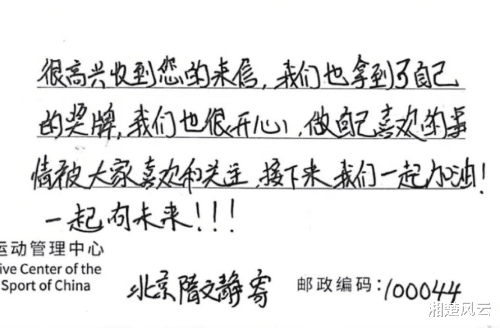 很高兴收到您的来信,我们也拿到了自己
的奖牌,我们也很开心,做自己喜欢的事
情被大家喜欢和关注,接下来我们一起加油!
一起向未来!!!
运动管理中心
ive Center of the
Sport of China
北京隋文静寄 邮政编码:100044
湘楚风云